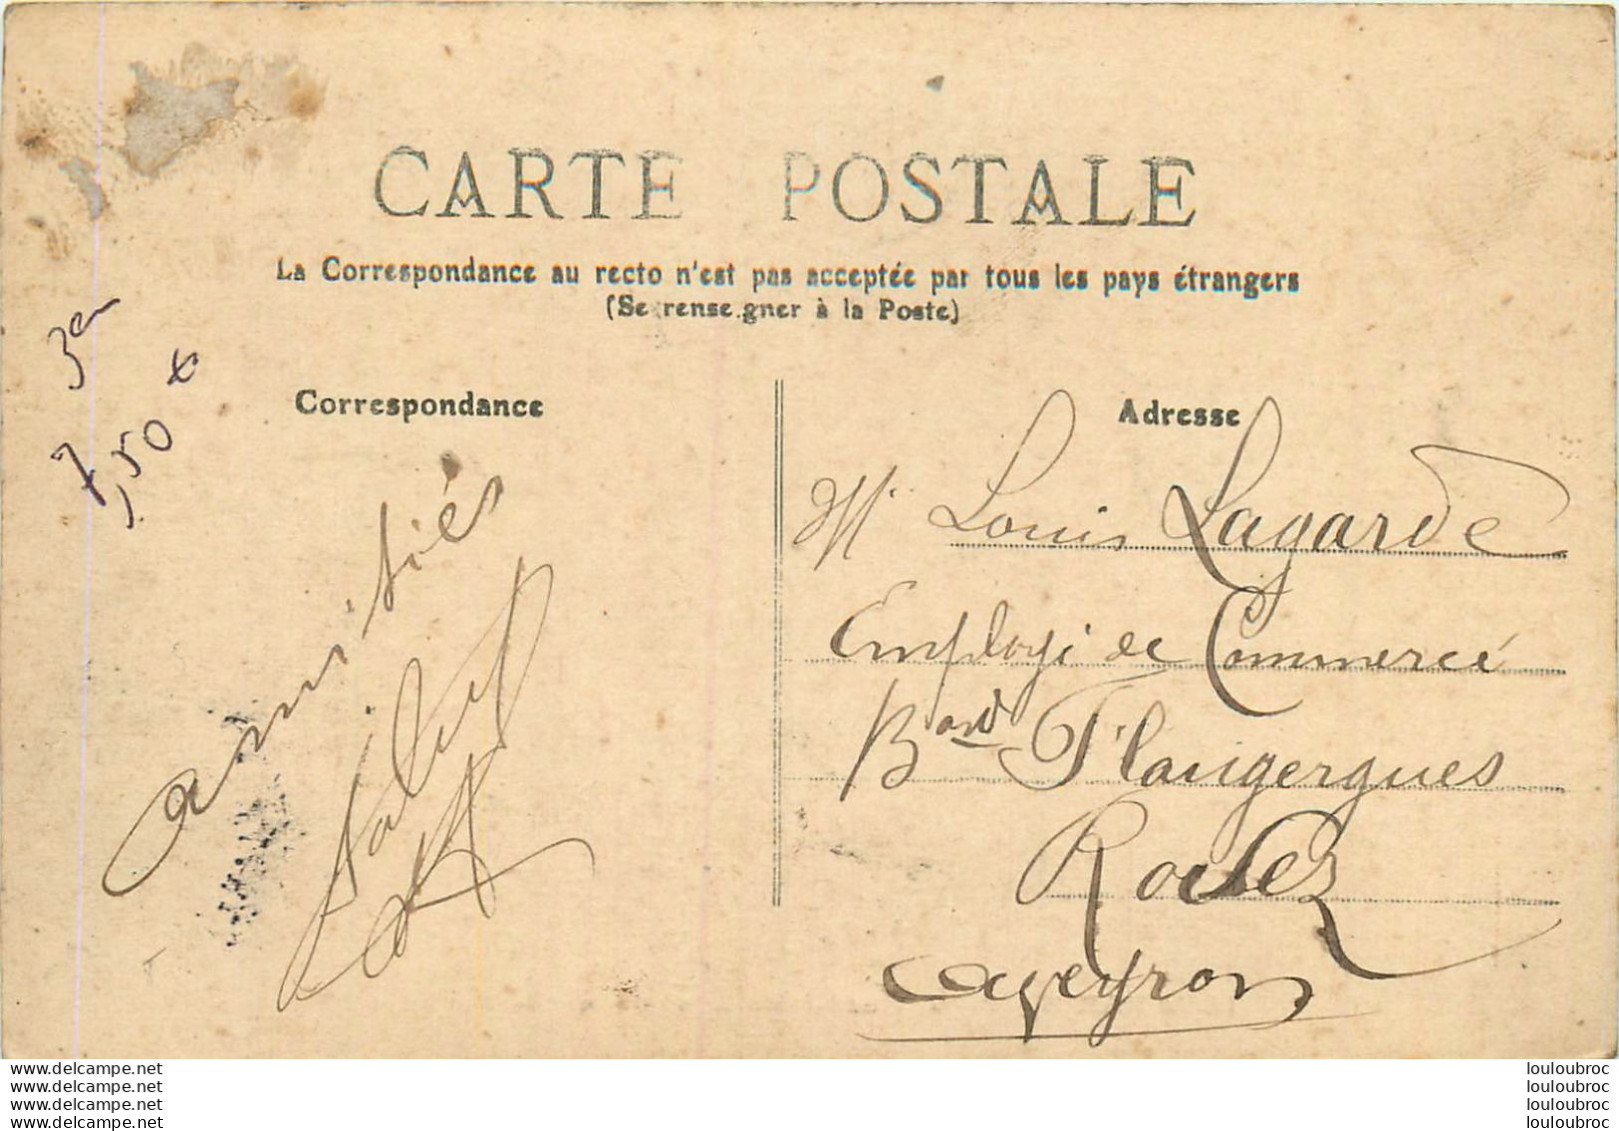 CARTE POSTALE
La Correspondance au recto n'est pas acceptée par tous les pays étrangers
(Se renseigner à la Poste)
Correspondance
Adresse
7,50 €
amitiés
Mr Louis Lagarde
Employé de Commerce
Bard Flaugergues
Rodez
Aveyron
www.delcampe.net
www.delcampe.net
www.delcampe.net
www.delcampe.net
louloubroc
louloubroc
louloubroc
louloubroc